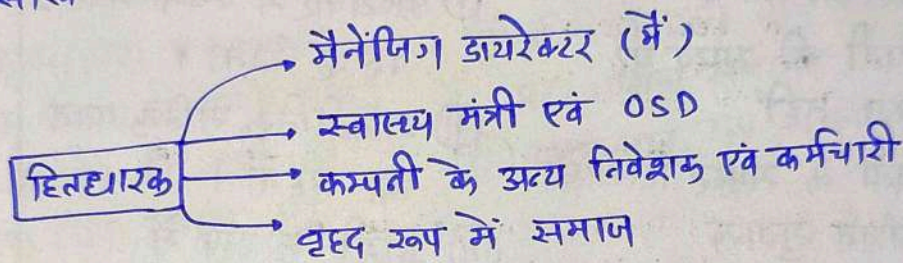 मैनेंजिग डायरेक्टर (मैं)
स्वास्थ्य मंत्री एवं OSD
हितधारक
कम्पनी के अन्य निवेशक एवं कर्मचारी
वृहद रूप में समाज